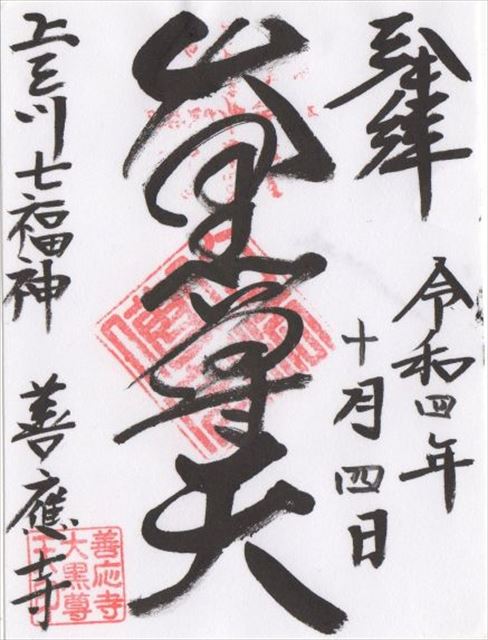 奉拝
令和四年
十月四日
大黒尊天
上三川七福神 善應寺
善応寺
大黒尊
天之印